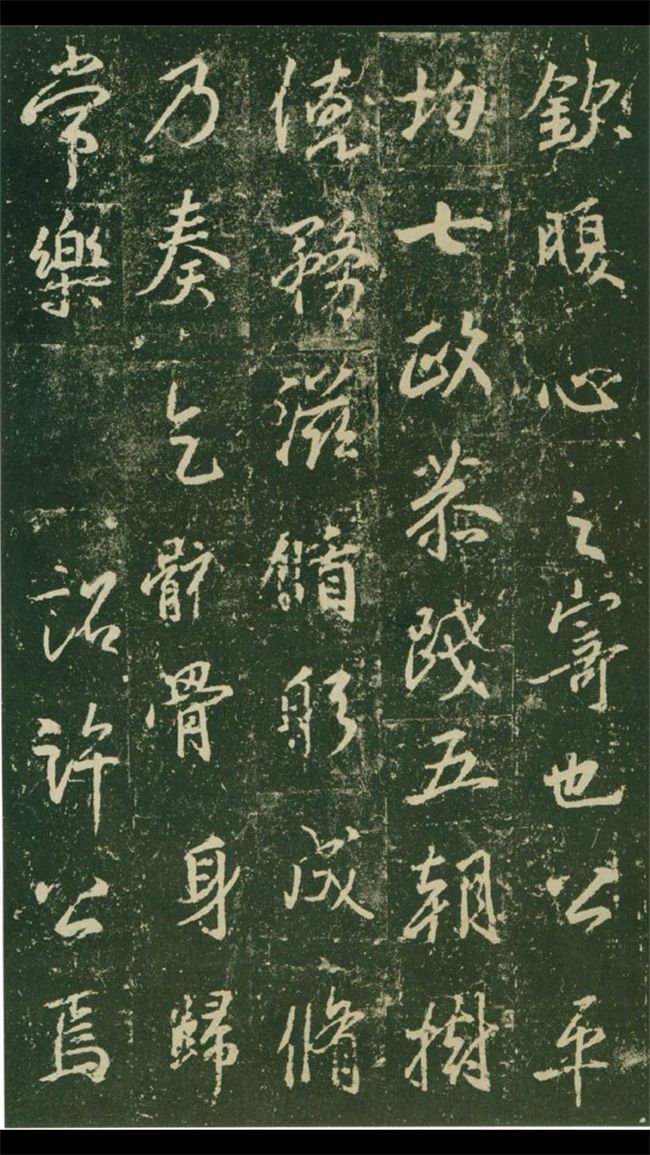 欽腹心之寄也公平
均七政恭踐五朝樹
德務滋躬咸脩
乃奏乞骸骨 身歸
常樂 詔許公焉